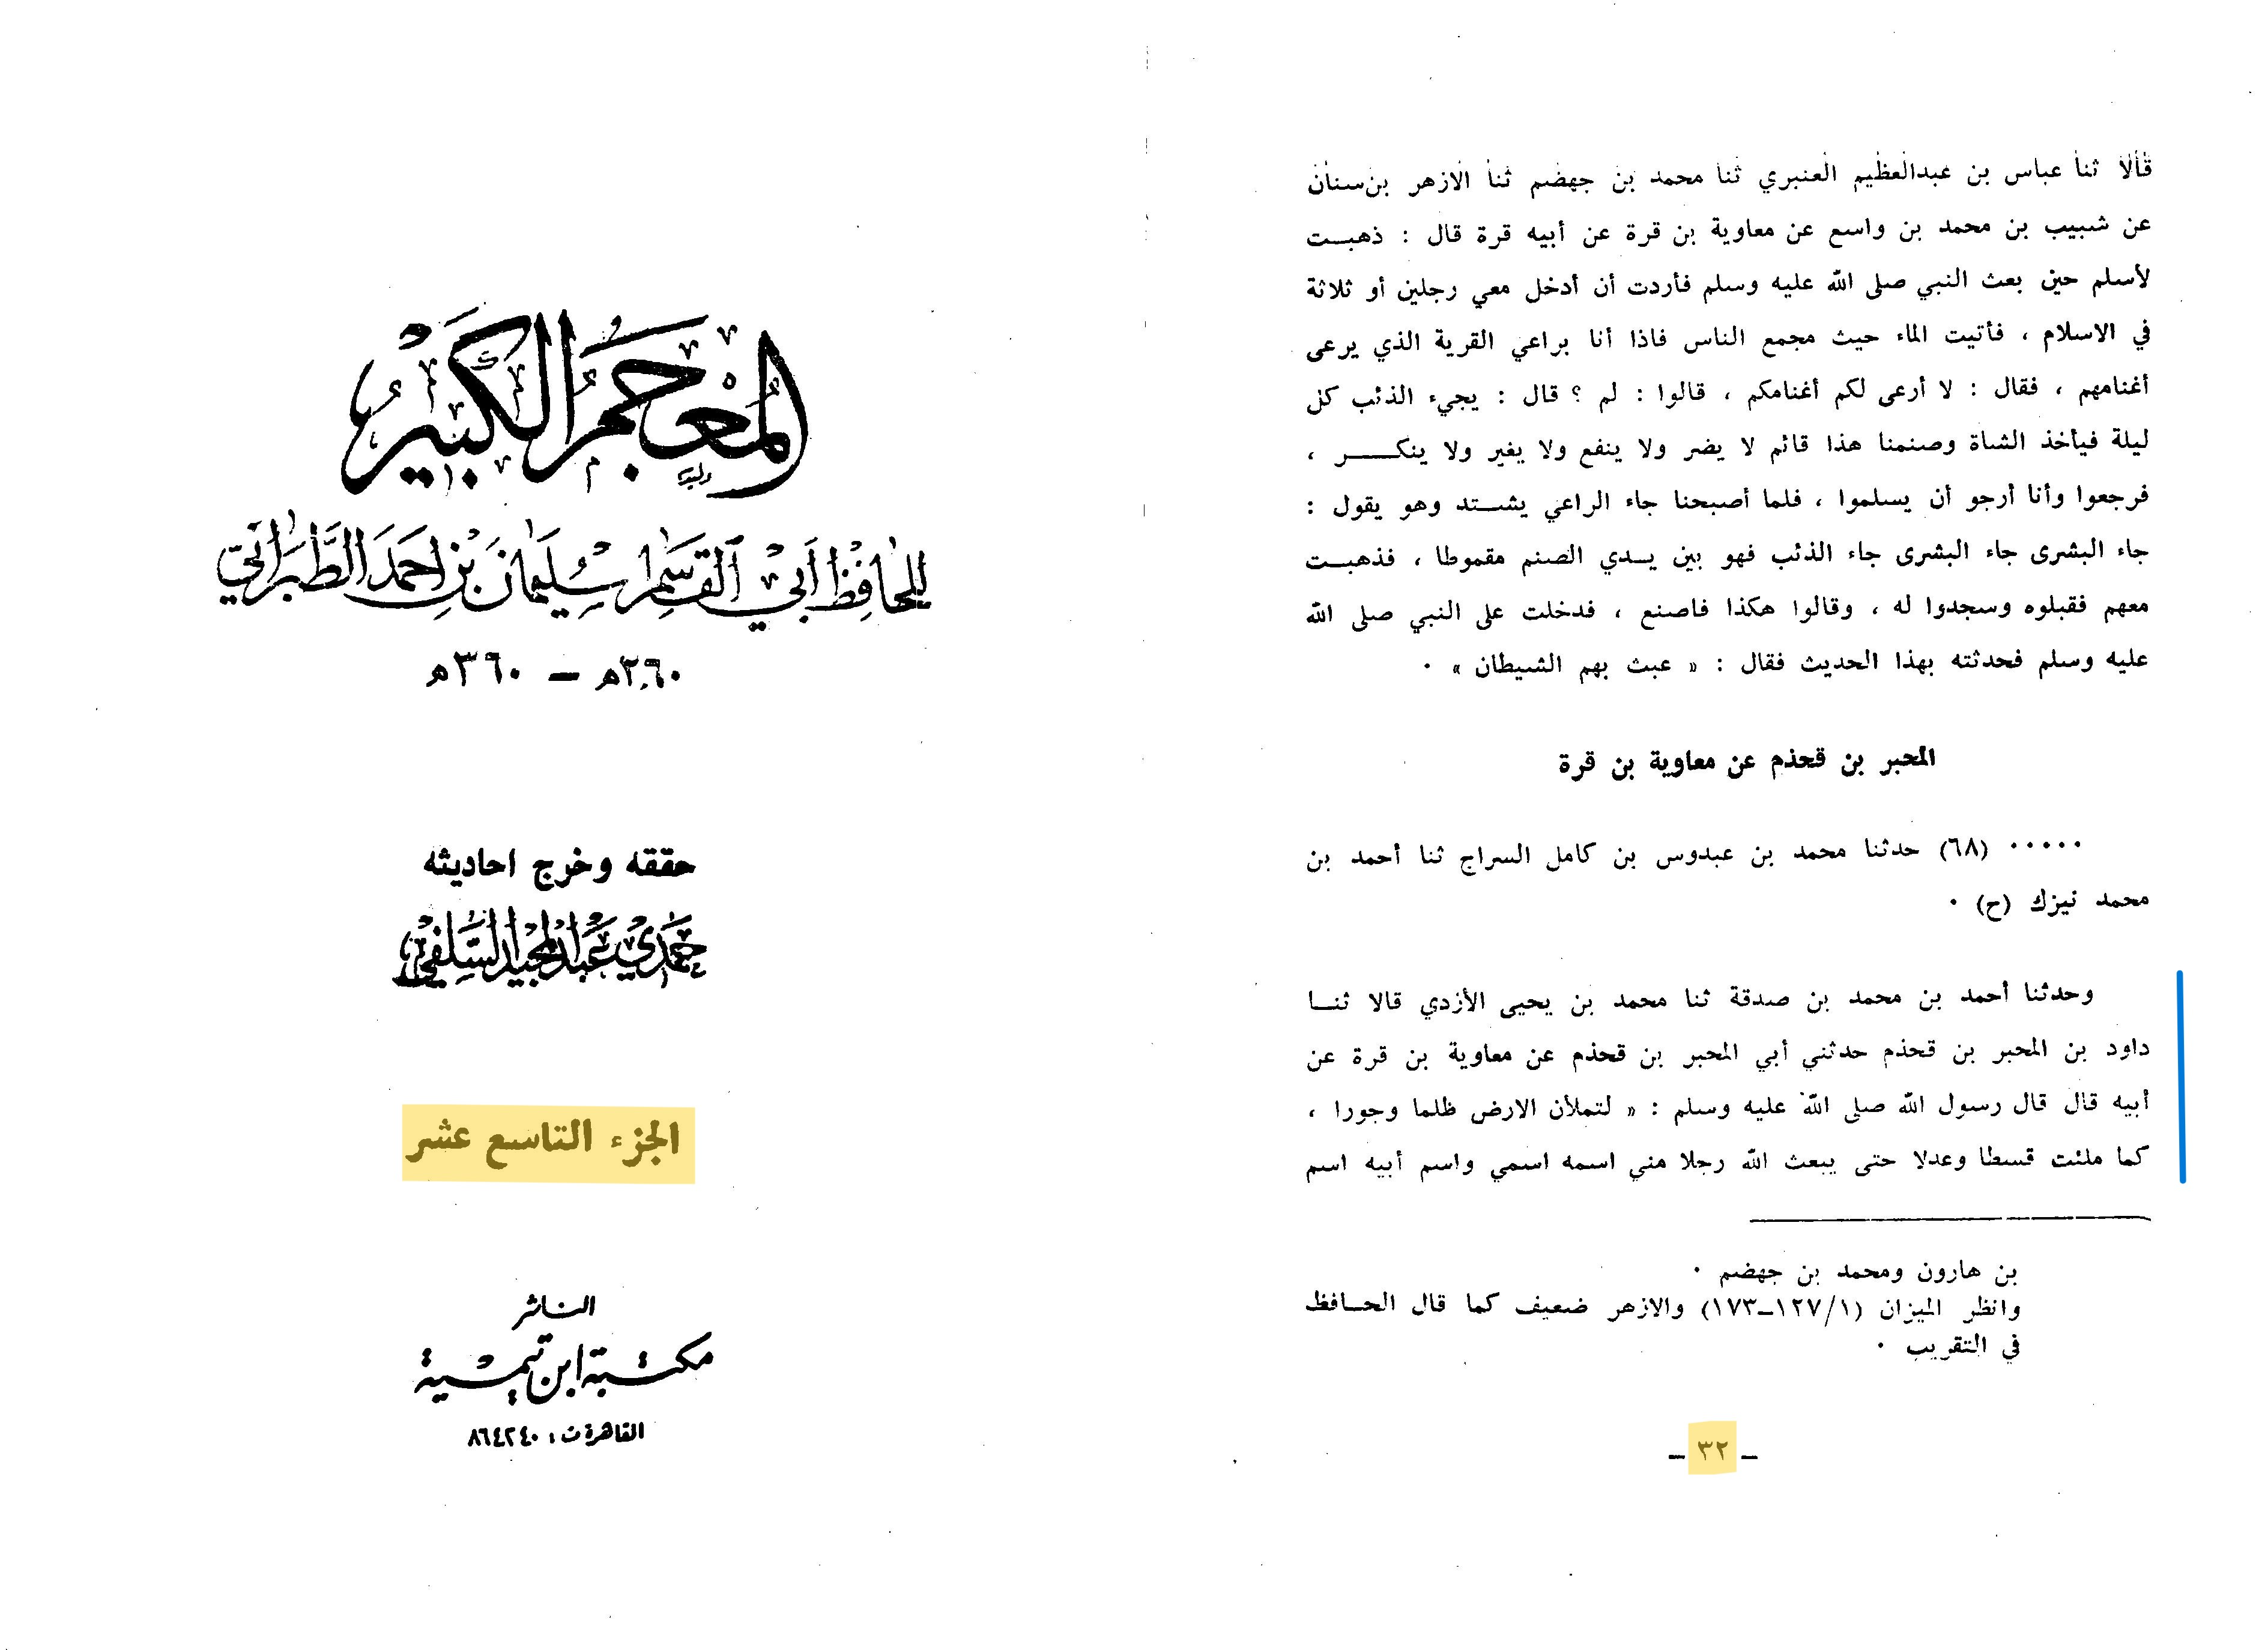 المعجم الكبير
وليد
للحافظ أبي القاسم سليمان بن أحمد الطبراني
٢٦٠ه‍ – ٣٦٠ه‍
حققه وخرج احاديثه
حمدي عبد المجيد السلفي
الجزء التاسع عشر
الناشر
مكتبة ابن تيمية
القاهرة ت : ٨٦٤٢٤٠
قالا ثنا عباس بن عبدالعظيم العنبري ثنا محمد بن جهضم ثنا الازهر بن سنان
عن شبيب بن محمد بن واسع عن معاوية بن قرة عن أبيه قرة قال : ذهبت
لأسلم حين بعث النبي صلى الله عليه وسلم فأردت أن أدخل معي رجلين أو ثلاثة
في الاسلام ، فأتيت الماء حيث مجمع الناس فاذا أنا براعي القرية الذي يرعى
أغنامهم ، فقال : لا أرعى لكم أغنامكم ، قالوا : لم ؟ قال : يجيء الذئب كل
ليلة فيأخذ الشاة وصنمنا هذا قائم لا يضر ولا ينفع ولا يغير ولا ينكر ،
فرجعوا وأنا أرجو أن يسلموا ، فلما أصبحنا جاء الراعي يشتد وهو يقول :
جاء البشرى جاء البشرى جاء الذئب فهو بين يدي الصنم مقموطا ، فذهبت
معهم فقبلوه وسجدوا له ، وقالوا هكذا فاصنع ، فدخلت على النبي صلى الله
عليه وسلم فحدثته بهذا الحديث فقال : « عبث بهم الشيطان » .
المحبر بن قحذم عن معاوية بن قرة
..... (٦٨) حدثنا محمد بن عبدوس بن كامل السراج ثنا أحمد بن
محمد نيزك (ح) .
وحدثنا أحمد بن محمد بن صدقة ثنا محمد بن يحيى الأزدي قالا ثنا
داود بن المحبر بن قحذم حدثني أبي المحبر بن قحذم عن معاوية بن قرة عن
أبيه قال قال رسول الله صلى الله عليه وسلم : « لتملأن الارض ظلما وجورا ،
كما ملئت قسطا وعدلا حتى يبعث الله رجلا مني اسمه اسمي واسم أبيه اسم
بن هارون ومحمد بن جهضم .
وانظر الميزان (١/١٢٧–١٧٣) والازهر ضعيف كما قال الحافظ
في التقريب .
– ٣٢ –